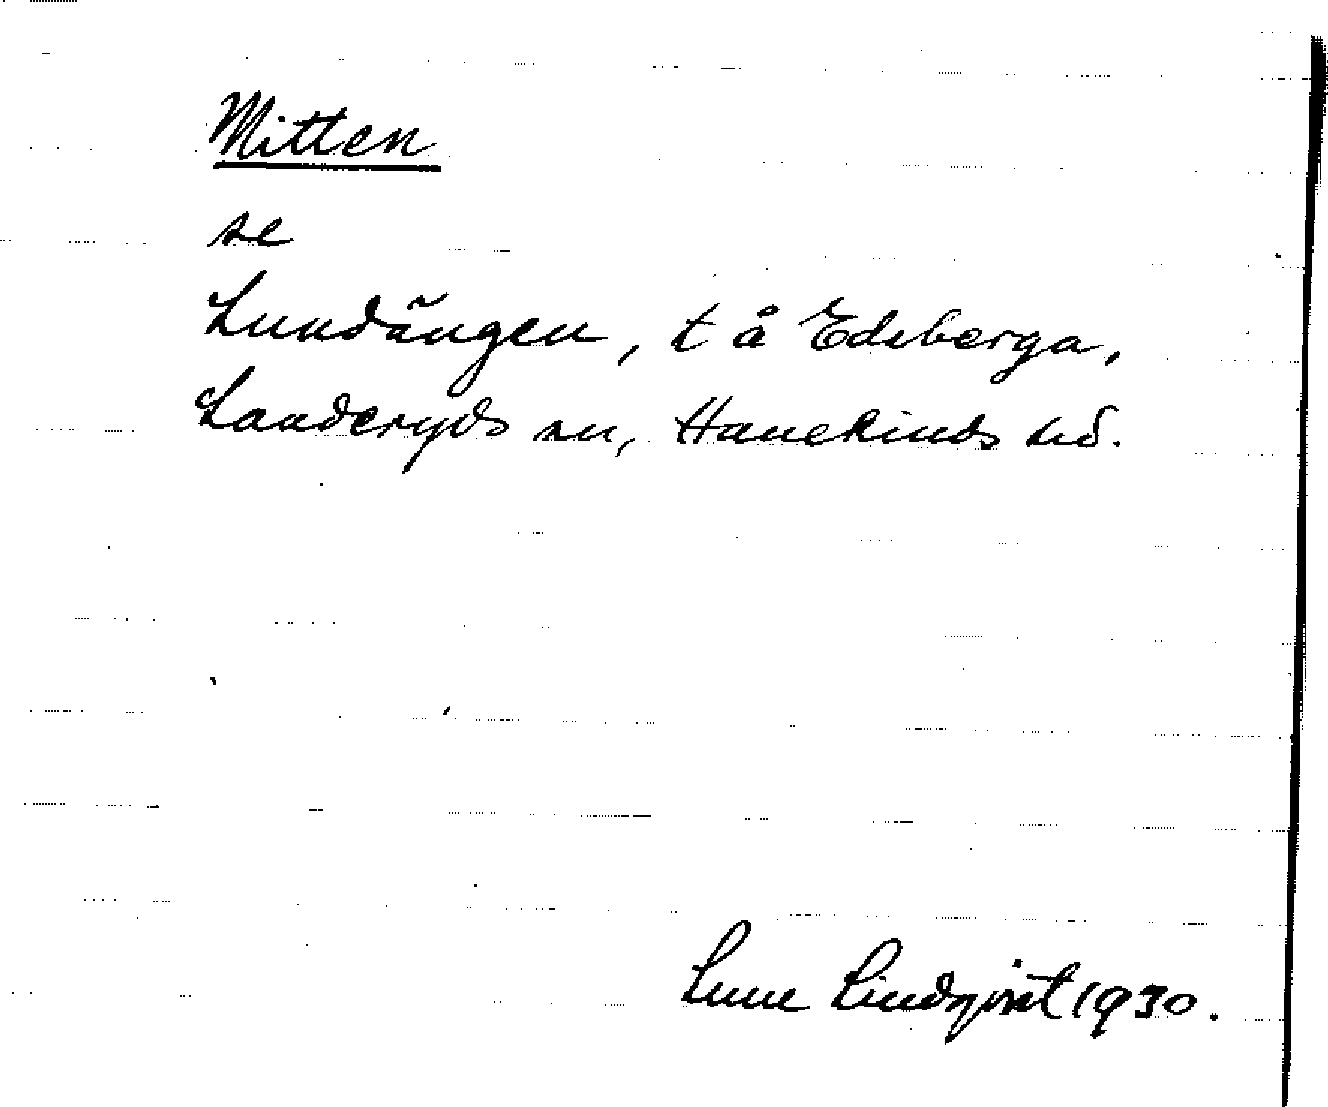 Mitten
se
Lundängen, t å Edeberga,
Landeryds sn, Hanekinds hd.
Sune Lindqvist 1930.